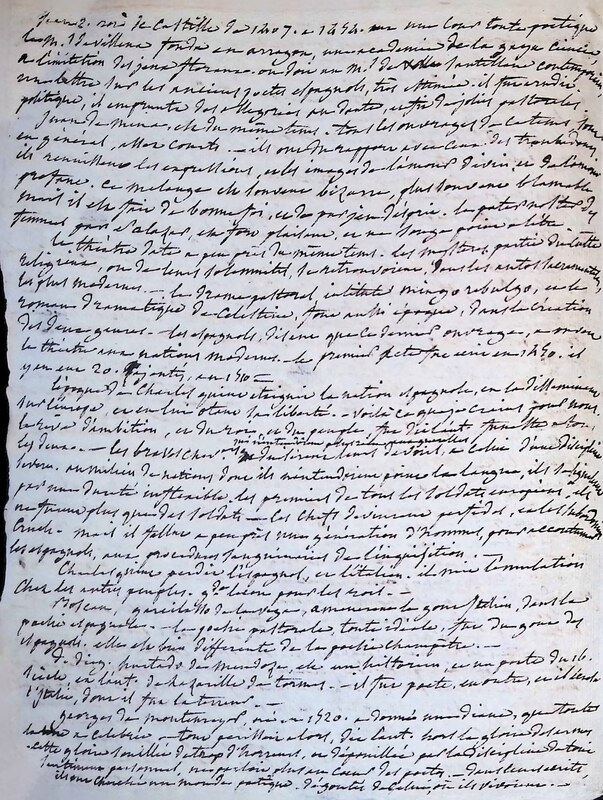 Jean 2. roi de Castille de 1407. a 1454. eut une cour toute poetique
le M. de Villena fonda en arragon, une academie de la gaya ciencia
a l'imitation des jeux floraux. on doit au M. de Santillane contemporain
une lettre sur les anciens poetes espagnols, très estimée. il fut erudit
politique, il emprunta des allegories au dante, et fit de jolies pastorales.
Juan de mena, est du même tems. tous les ouvrages de ce tems, sont
en général, assez courts. ils ont du rapport avec ceux des troubadours.
ils reunissent les expressions, et les images de l'amour divin, et de l'amour
profane. ce melange est souvent bizarre, plus souvent blamable
mais il est fait de bonne foi, et de pas jeu d'esprit. le pater noster des
femmes, par Salazar, est fort plaisant, et ne songe point a l'être. —
le théatre date a peu près du même tems. les mystères, partie du culte
religieux, ou de leurs solemnités, se retrouvent, dans les autos sacramentales,
les plus modernes. — le drame pastoral intitulé mingo rebulgo, et le
roman dramatique de Celestine, font aussi époque, dans la création
des deux genres. les espagnols, disent que ce dernier ouvrage, a ouvert
le théatre aux nations modernes. le premier acte fut ecrit en 1490. il
y en eut 20. ajoutés, en 1510 —
Charles quint eteignit la nation espagnole, en la disseminant
sur l'europe et en lui otant sa liberté. — voilà ce que je crains pour nous.
la soif d'ambition, et du roi, et du peuple, fut
les deux. — les braves
severe. au milieu de nations dont ils n'entendirent point la langue, ils se
par une dureté inflexible. les premiers de tous les soldats européens, ils
ne furent plus que des soldats — les chefs devinrent perfides, et les subordonnés
cruels. mais il fallut a peu près une génération d'hommes, pour accoutumer
les espagnols, aux procedures sanguinaires de l'inquisition. —
Charles quint perdit l'espagnol, et l'italien. il mit l'émulation
chez les autres peuples. leçon pour les rois. —
Boscan, garcilasso de la vega, amenerent le gout italien, dans la
poésie espagnole. — la poésie pastorale, toute ideale, fut du gout des
espagnols. elle est bien differente de la poésie champêtre. —
D. Diego hurtado de mendoza, est un historien, et un poete du 16.
siècle, et l'aut. de Lazarille de tormes. — il fut poete, en outre, et il
l'italie, dont il fut la terreur. —
georges de montemayor, né en 1520. a donné une diane, que toute
a celebrée — tout perissoit alors, disent, hors la gloire des armes.
cette gloire souillée de trop d'horreurs, et dépouillée par la discipline de tout
sentiment personnel, ne parloit plus au cœur des poetes. — dans leurs ecrits
ils ont cherché un monde poétique, dégoutés de celui, où ils vivoient. —